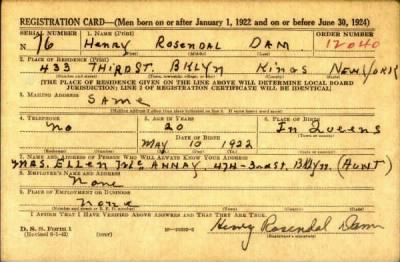 REGISTRATION CARD—(Men born on or after January 1, 1922 and on or before June 30, 1924)
SERIAL NUMBER 1. NAME (Print) ORDER NUMBER
N 76 Henry Rosendal Dam 12040
2. PLACE OF RESIDENCE (Print)
433 THIRD ST. BKLYN Kings NEW YORK
[THE PLACE OF RESIDENCE GIVEN ON THE LINE ABOVE WILL DETERMINE LOCAL BOARD
JURISDICTION; LINE 2 OF REGISTRATION CERTIFICATE WILL BE IDENTICAL]
3. MAILING ADDRESS
Same
4. TELEPHONE 5. AGE IN YEARS 6. PLACE OF BIRTH
No 20 In Queens
DATE OF BIRTH
May 10 1922
7. NAME AND ADDRESS OF PERSON WHO WILL ALWAYS KNOW YOUR ADDRESS
MRS. Ellen 474-3rd St. Bklyn. (AUNT)
8. EMPLOYER'S NAME AND ADDRESS
None
9. PLACE OF EMPLOYMENT OR BUSINESS
None
I AFFIRM THAT I HAVE VERIFIED ABOVE ANSWERS AND THAT THEY ARE TRUE.
D. S. S. Form 1
(Revised 6-1-42)
Henry Rosendal Dam